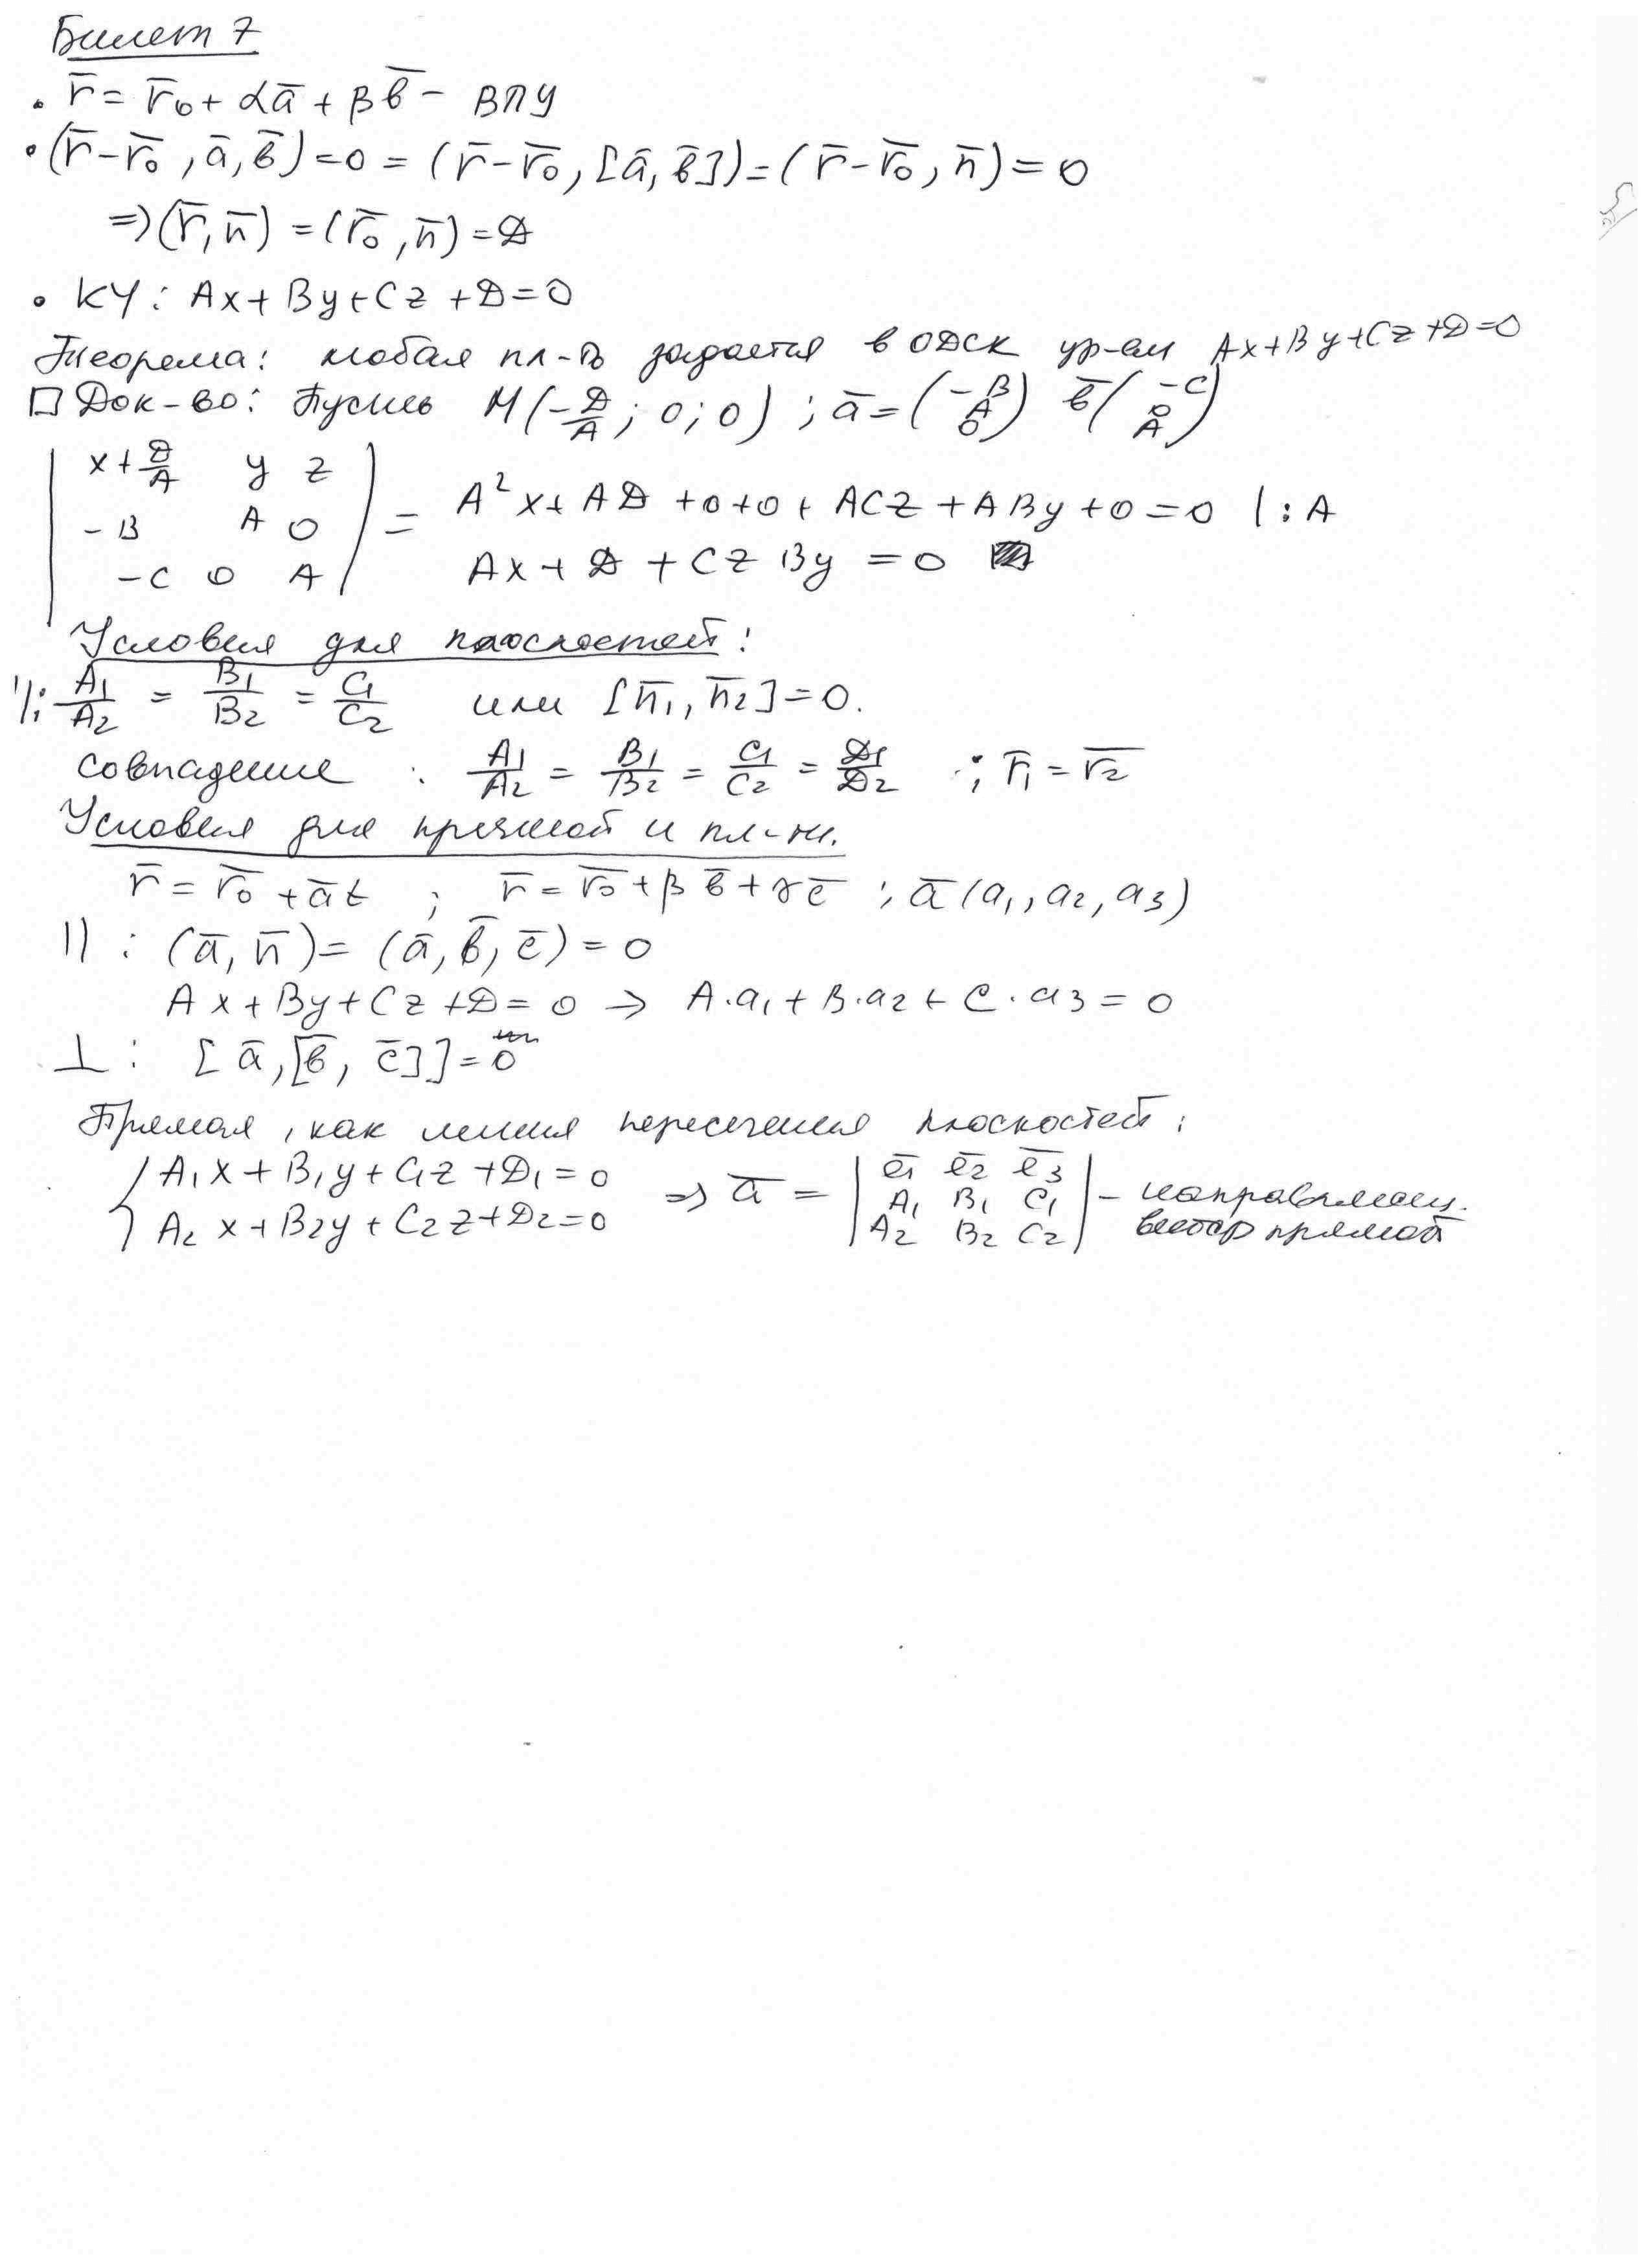 Билет 7
• r̄ = r̄₀ + αā + βв̄ – ВПУ
• (r̄ – r̄₀, ā, в̄) = 0 = (r̄ – r̄₀, [ā, в̄]) = (r̄ – r̄₀, n̄) = 0
⇒ (r̄, n̄) = (r̄₀, n̄) = D
• КУ: Ax + By + Cz + D = 0
Теорема: любая пл-ть задается в ОДСК ур-ем Ax + By + Cz + D = 0
□ Док-во: Пусть M(-D/A; 0; 0); ā = (-B A 0) в̄(-C 0 A)
| x + D/A y z |
| -B A 0 | = A²x + AD + 0 + 0 + ACz + ABy + 0 = 0 | : A
| -C 0 A | Ax + D + Cz By = 0
Условия для плоскостей:
||: A₁/A₂ = B₁/B₂ = C₁/C₂ или [n̄₁, n̄₂] = 0.
совпадение : A₁/A₂ = B₁/B₂ = C₁/C₂ = D₁/D₂ ; r̄₁ = r̄₂
Условия для прямой и пл-ти.
r̄ = r̄₀ + āt ; r̄ = r̄₀ + βв̄ + γc̄ ; ā(a₁, a₂, a₃)
|| : (ā, n̄) = (ā, в̄, c̄) = 0
Ax + By + Cz + D = 0 → A·a₁ + B·a₂ + C·a₃ = 0
⊥ : [ā, [в̄, c̄]] = 0̄
Прямая, как линия пересечения плоскостей:
{ A₁x + B₁y + C₁z + D₁ = 0
{ A₂x + B₂y + C₂z + D₂ = 0 ⇒ ā = | ē₁ ē₂ ē₃ |
| A₁ B₁ C₁ | – направляющ.
| A₂ B₂ C₂ | вектор прямой